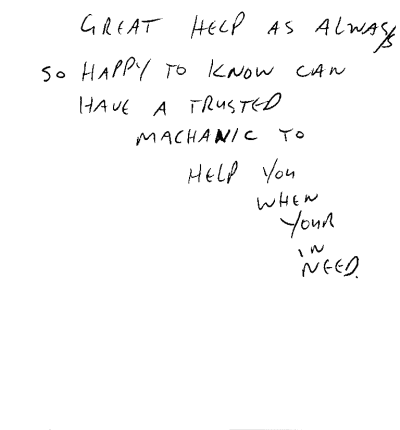 GREAT HELP AS ALWAYS
SO HAPPY TO KNOW CAN
HAVE A TRUSTED
MACHANIC TO
HELP YOU
WHEN
YOUR
IN
NEED.